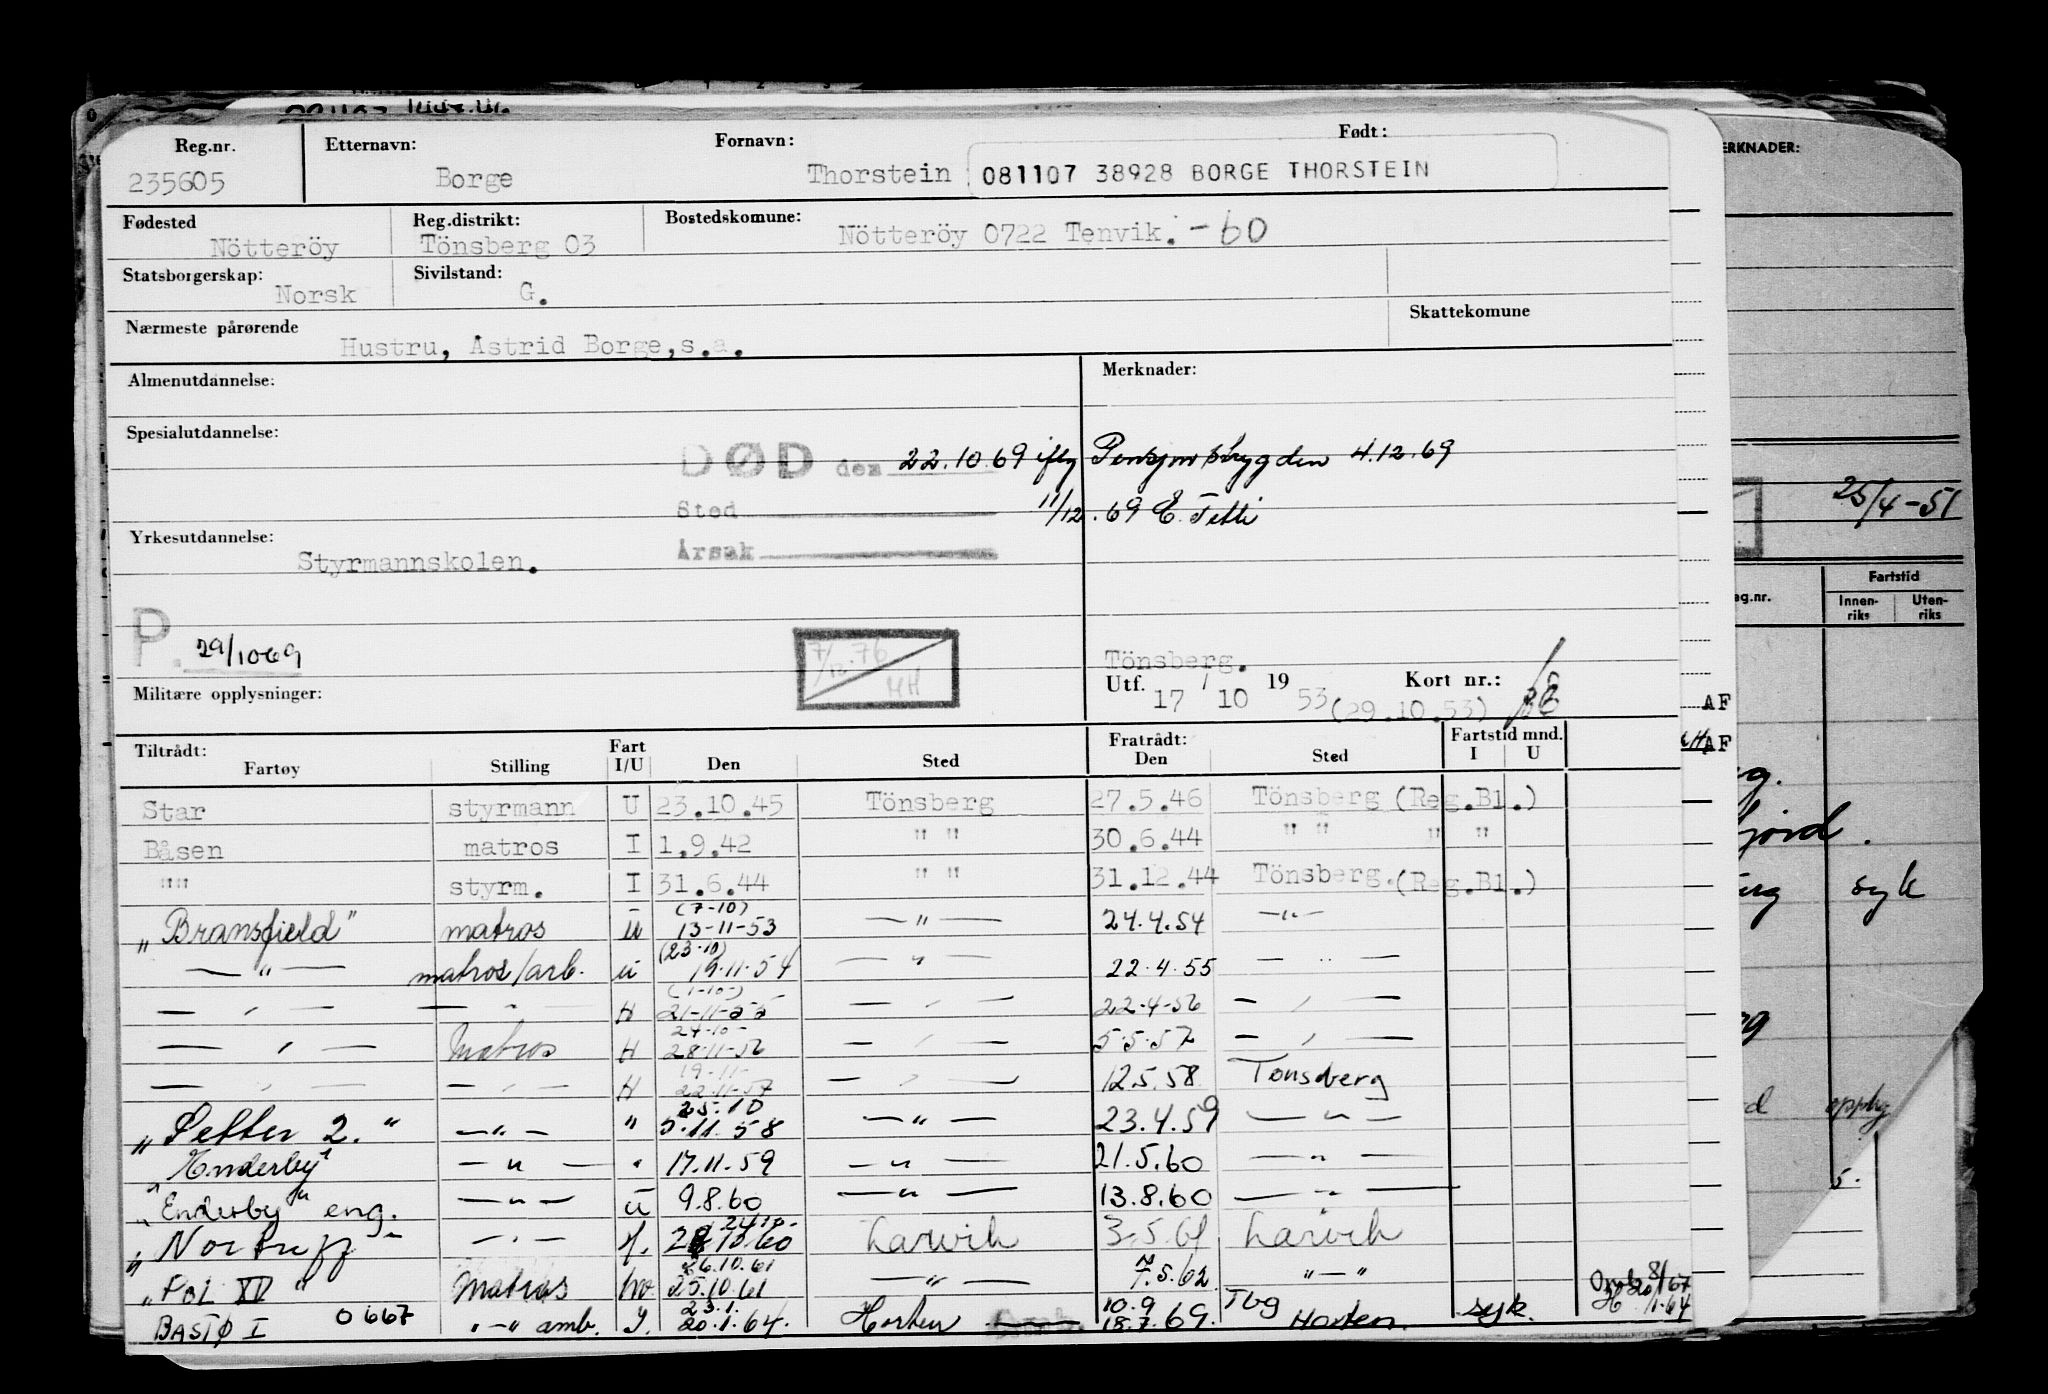 Reg.nr. Etternavn: Fornavn: Født: MERKNADER:
235605 Borge Thorstein 081107 38928 BORGE THORSTEIN
Fødested Reg.distrikt: Bostedskomune:
Nötteröy Tönsberg 03 Nötteröy 0722 Tenvik. -60
Statsborgerskap: Sivilstand:
Norsk G.
Nærmeste pårørende Skattekomune
Hustru, Astrid Borge, s.a.
Almenutdannelse: Merknader:
Spesialutdannelse:
DØD den 22.10.69 iflg Pensjonstrygden 4.12.69
Sted 11/12.69 E.
25/4-51
Yrkesutdannelse: Årsak
Styrmannskolen.
P. 29/1069
7/12.76 MH
Tönsberg.
Militære opplysninger: Utf. 17/10 1953 (29.10.53) Kort nr.:
Fartstid
Innenriks Utenriks
AF
AF
Tiltrådt: Fratrådt: Fartstid mnd.
Fartøy Stilling Fart I/U Den Sted Den Sted I U
Star styrmann U 23.10.45 Tönsberg 27.5.46 Tönsberg (Reg.Bl.)
Båsen matros I 1.9.42 " " 30.6.44 " " " "
"" styrm. I 31.6.44 " " 31.12.44 Tönsberg. (Reg.Bl.)
(7-10)
"Bransfield" matros U 13-11-53 — " — 24.4.54 — " —
(23-10)
— " — matros/arb. U 19.11.54 — " — 22.4.55 — " —
(1-10-)
— " — — " — H 21-11-55 — " — 22-4-56 — " —
24-10-
— " — Matros H 28-11-56 — " — 5.5.57 — " —
19-11-
— " — — " — H 22-11-57 — " — 12.5.58 Tønsberg
25.10
"Petter 2." — " — " 5.11.58 — " — 23.4.59 — " —
"Enderby" — " — " 17.11.59 — " — 21.5.60 — " —
"Enderby" eng. — " — U 9.8.60 — " — 13.8.60 — " —
2410-
"Nortuff" — " — 28 10.60 Larvik 3.5.61 Larvik
26.10.61
"Pol XV" Matros 25.10.61 — " — 7.5.62 " — "
23.1. 10.9 Tbg
BASTØ I 0667 " — " amb. I. 20.1.64. Horten 18.7.69. Horten. syk.
syk